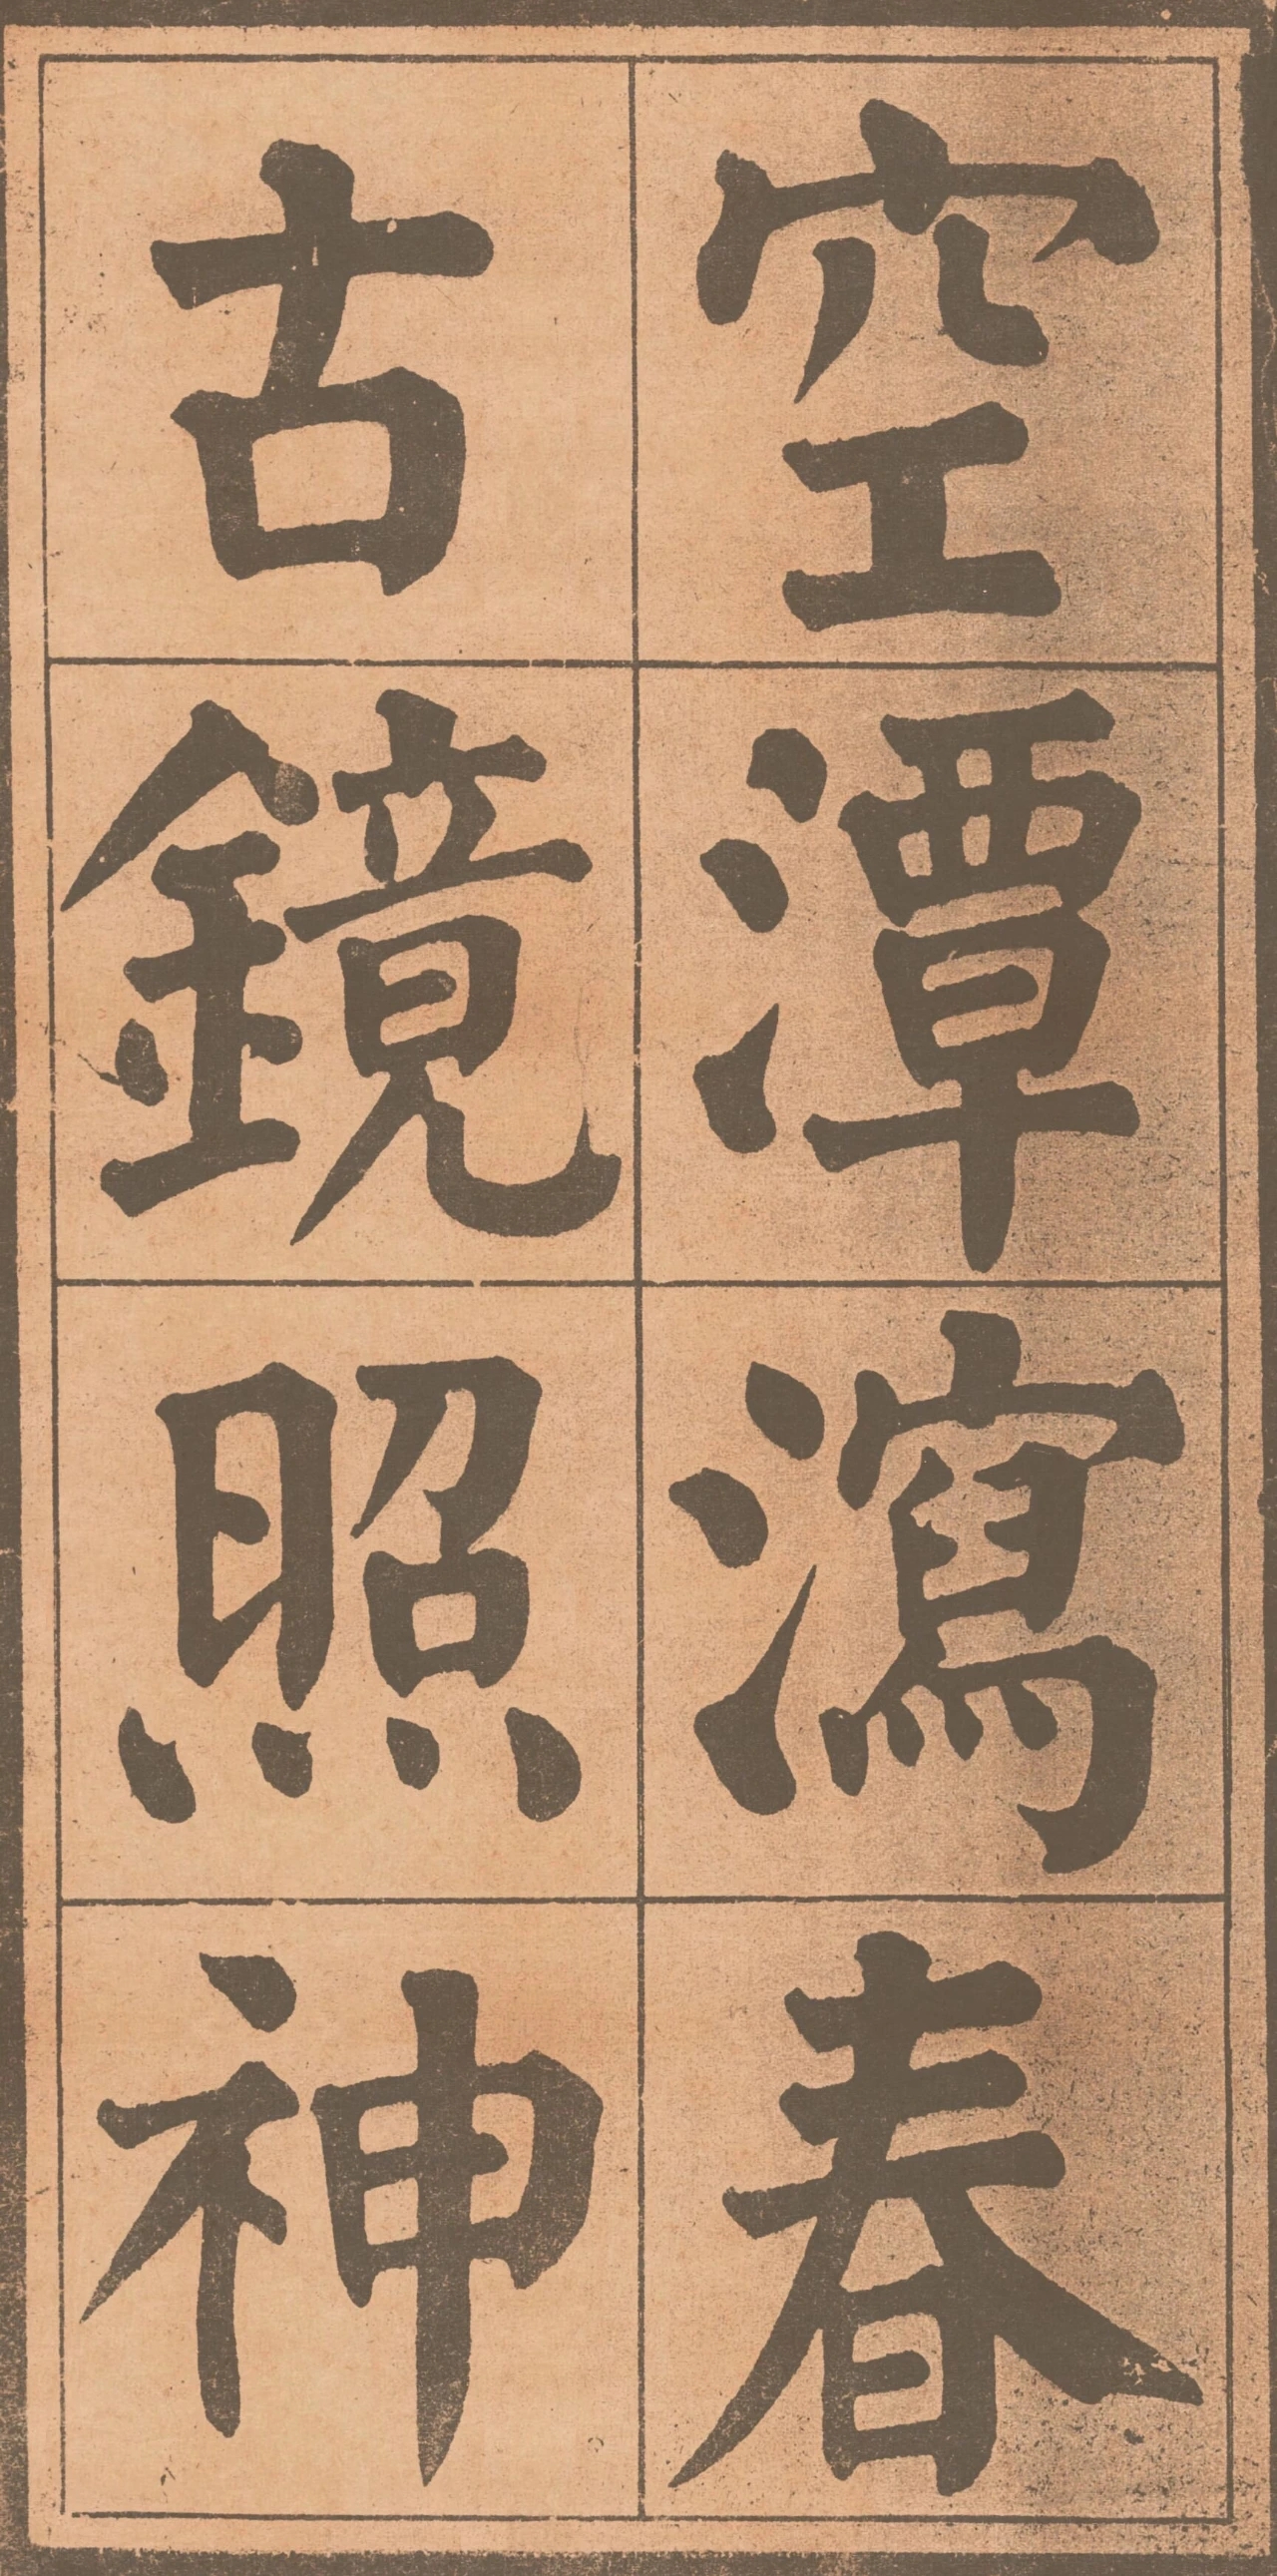 空潭瀉春
古鏡照神